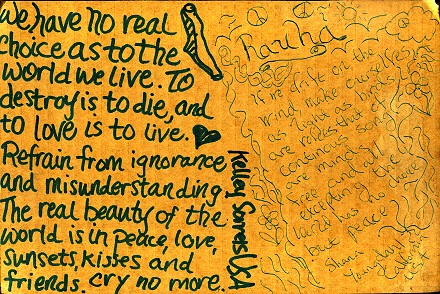 We have no real
choice as to the
world we live. To
destroy is to die, and
to love is to live.
Refrain from ignorance
and misunderstanding
The real beauty of the
world is in peace, love,
sunsets, kisses and
friends. cry no more.
Kelley Sonnes USA
Rauha
drift on the
wind, make
as light as birds
are voices that
continous song
are minds
free and all
excepting the
land has no
but peace
Shana
California